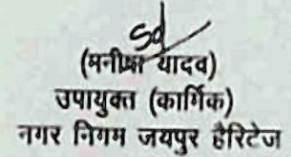 Sd
(मनीषा यादव)
उपायुक्त (कार्मिक)
नगर निगम जयपुर हैरिटेज